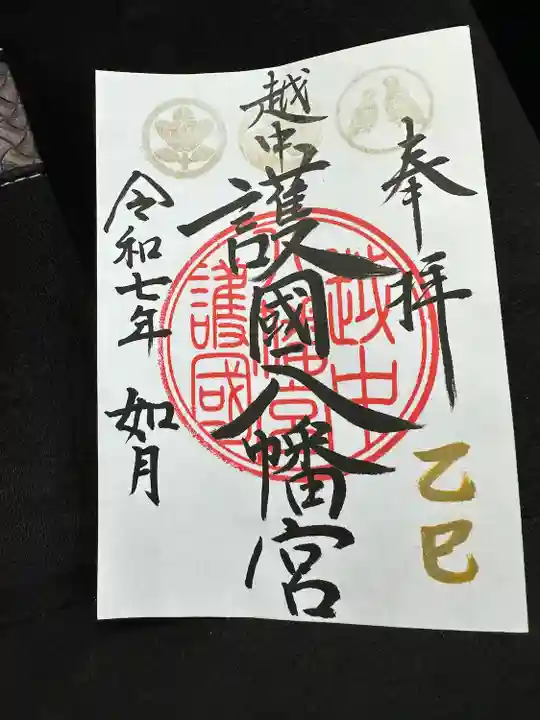 奉拝
乙巳
越中
護國八幡宮
越中
護國
令和七年 如月